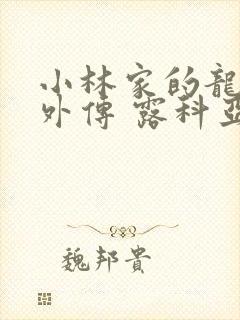 小林家的龍
外傳 露科亞
魏邦貴